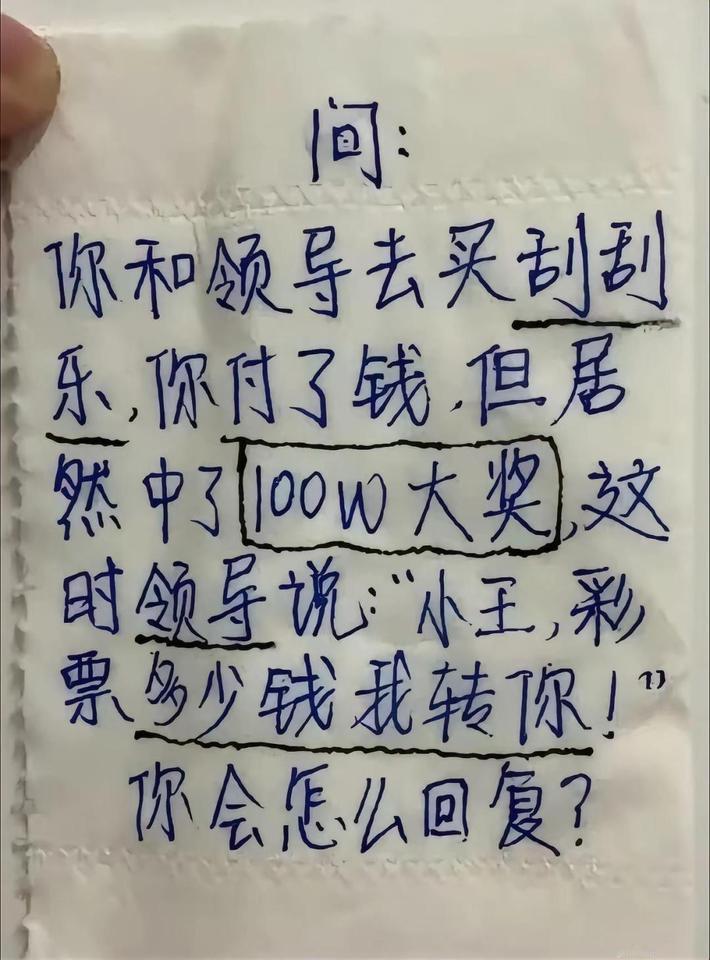 问:
你和领导去买刮刮
乐,你付了钱,但居
然中了100W大奖,这
时领导说:“小王,彩
票多少钱我转你!”
你会怎么回复?